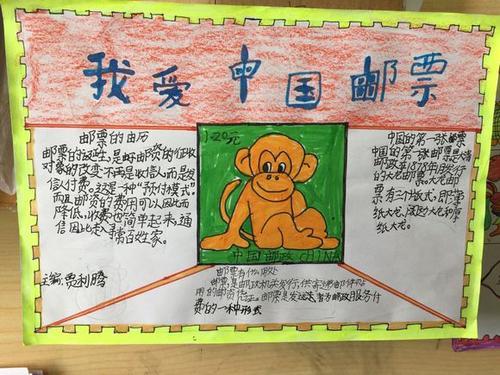 我爱中国邮票
邮票的由历
邮票的诞生,是好邮资的征收
对象的改变,不再是收信人,而是发
信付费。这是一种"预付模式"
而且邮资的费用可以人因此而
降低,收费也简单起来,通
信因此走入寻常百姓家。
主编:贾利腾
1.20元
中国邮政 CHINA
中国的第一张邮票
中国的第一张邮票是大清
邮政在1878年
的大龙邮
票有三个版式,即
纸大龙、阔边大龙和厚
纸大龙。
邮票有什么用处
邮票,是邮政机关发行,供寄递邮件
用的邮资凭证。邮票是发送者为邮政服务付
费的一种形式